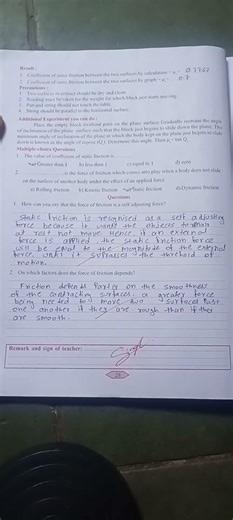 Result :
1. Coefficient of static friction between the two surfaces by calculation = μs = 0.3767
2. Coefficient of static friction between the two surfaces by graph = μs = 0.7
Precautions :
1. Two surfaces in contact should be dry and clean.
2. Reading must be taken for the weight for which block just starts moving.
3. Pan and string should not touch the table.
4. String should be parallel to the horizontal surface.
Additional Experiment you can do :
Place the empty block (without pan) on the plane surface. Gradually increase the angle
of inclination of the plane surface such that the block just begins to slide down the plane. The
minimum angle of inclination of the plane at which the body kept on the plane just begins to slide
down is known as the angle of repose (θ). Determine this angle. Then
Multiple-choice Questions
1. The value of coefficient of static friction is
a) Greater than 1 b) less than 1 c) equal to 1 d) zero
2. is the force of friction which comes into play when a body does not slide
on the surface of another body under the effect of an applied force
a) Rolling friction b) Kinetic friction c) Static friction d) Dynamic friction
Questions
1. How can you say that the force of friction is a self adjusting force?
Static friction is recognised as a self adjusting
force because it wants the objects to remain
at rest not move Hence, if an external
force is applied the static friction force
will be equal to the magnitude of the external
force, until it the threhold of
motion.
2. On which factors does the force of friction depends?
Friction on the smoothness
of the contracting surfaces a greater force
being needed to move two surfaces past
one another if they are rough than if they
are smooth.
Remark and sign of teacher: